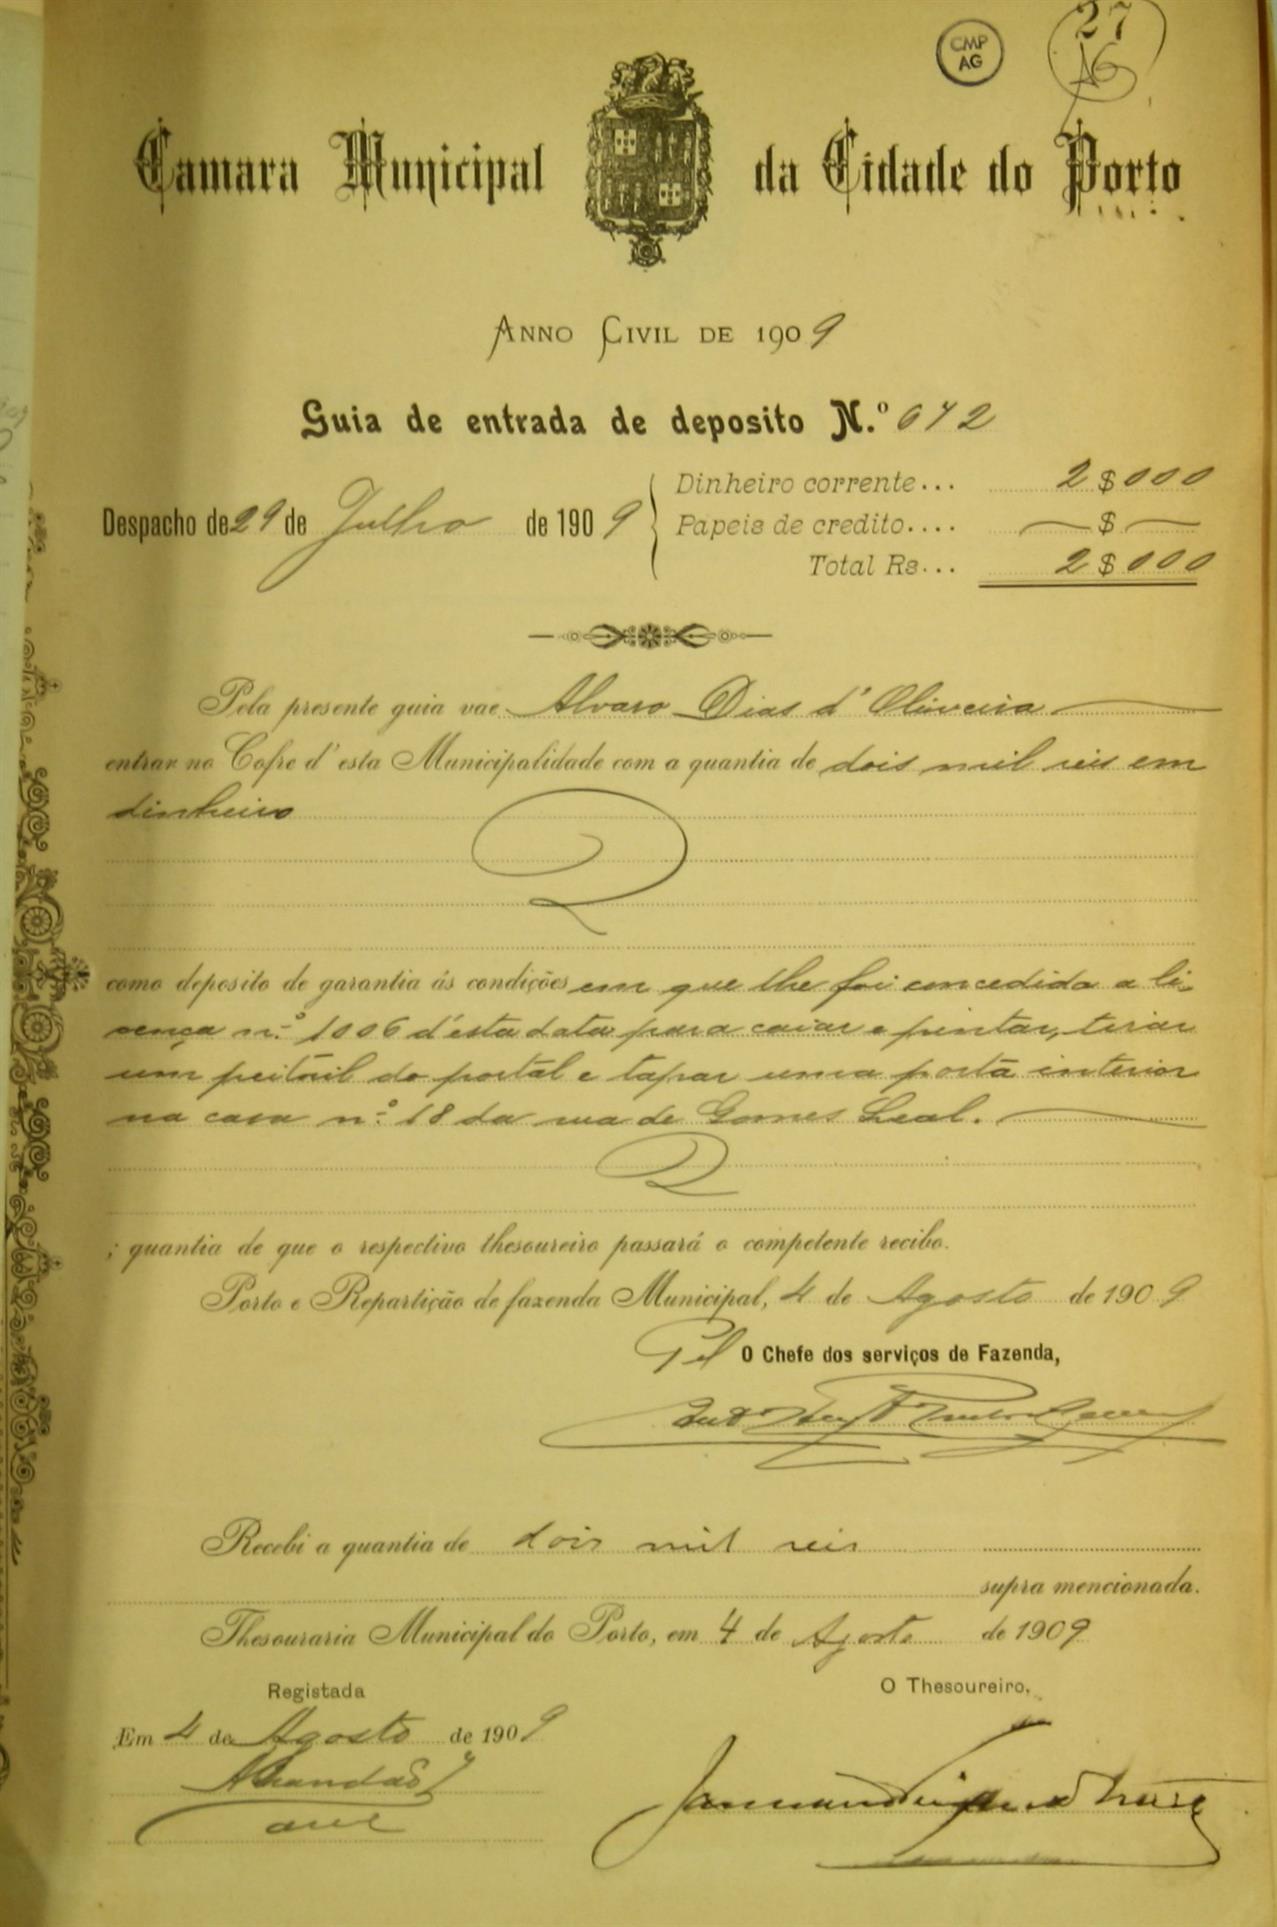 27
CMP
AG
AG
Camara Municipal da Cidade do Porto
ANNO CIVIL DE 1909
Guia de entrada de deposito N.º 672
Despacho de 29 de Julho de 1909
Dinheiro corrente... 2$000
Papeis de credito.... —$—
Total Rs... 2$000
Pela presente guia vae Alvaro Dias d'Oliveira
entrar no Cofre d'esta Municipalidade com a quantia de dois mil reis em
dinheiro
como deposito de garantia ás condições em que lhe foi concedida a li-
cença n.º 1006 d'esta data para caiar e pintar, tirar
um peitoril do portal e tapar uma porta interior
na casa n.º 18 da rua de Gomes Leal.
; quantia de que o respectivo thesoureiro passará o competente recibo.
Porto e Repartição de fazenda Municipal, 4 de Agosto de 1909
Pel O Chefe dos serviços de Fazenda,
Recebi a quantia de dois mil reis
supra mencionada.
Thesouraria Municipal do Porto, em 4 de Agosto de 1909
Registada
O Thesoureiro,
Em 4 de Agosto de 1909